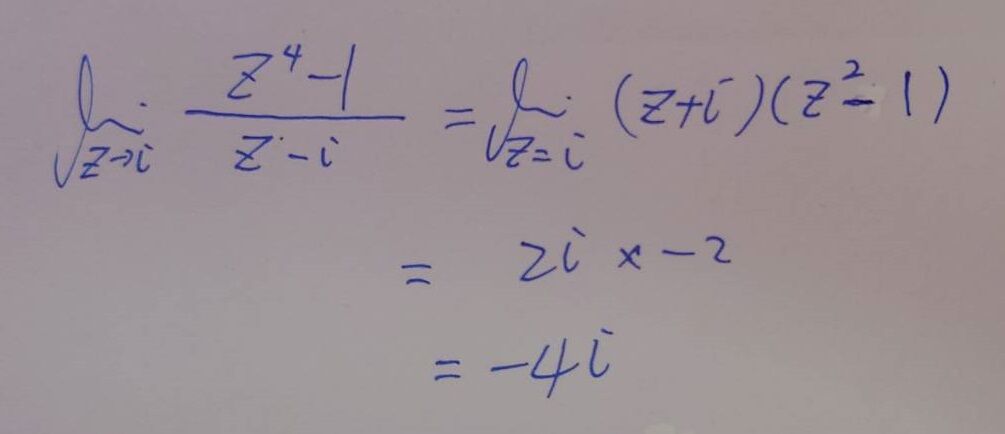 lim z→i (z⁴-1)/(z-i) = lim z=i (z+i)(z²-1)
= 2i × -2
= -4i